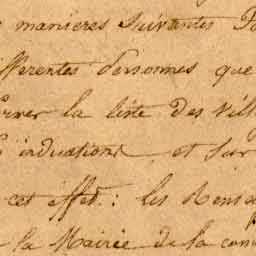 manieres suivantes Po
ifferentes personnes que
erver la liste des vill
induations et sur
cet effet : les Rense
la Mairie de la com